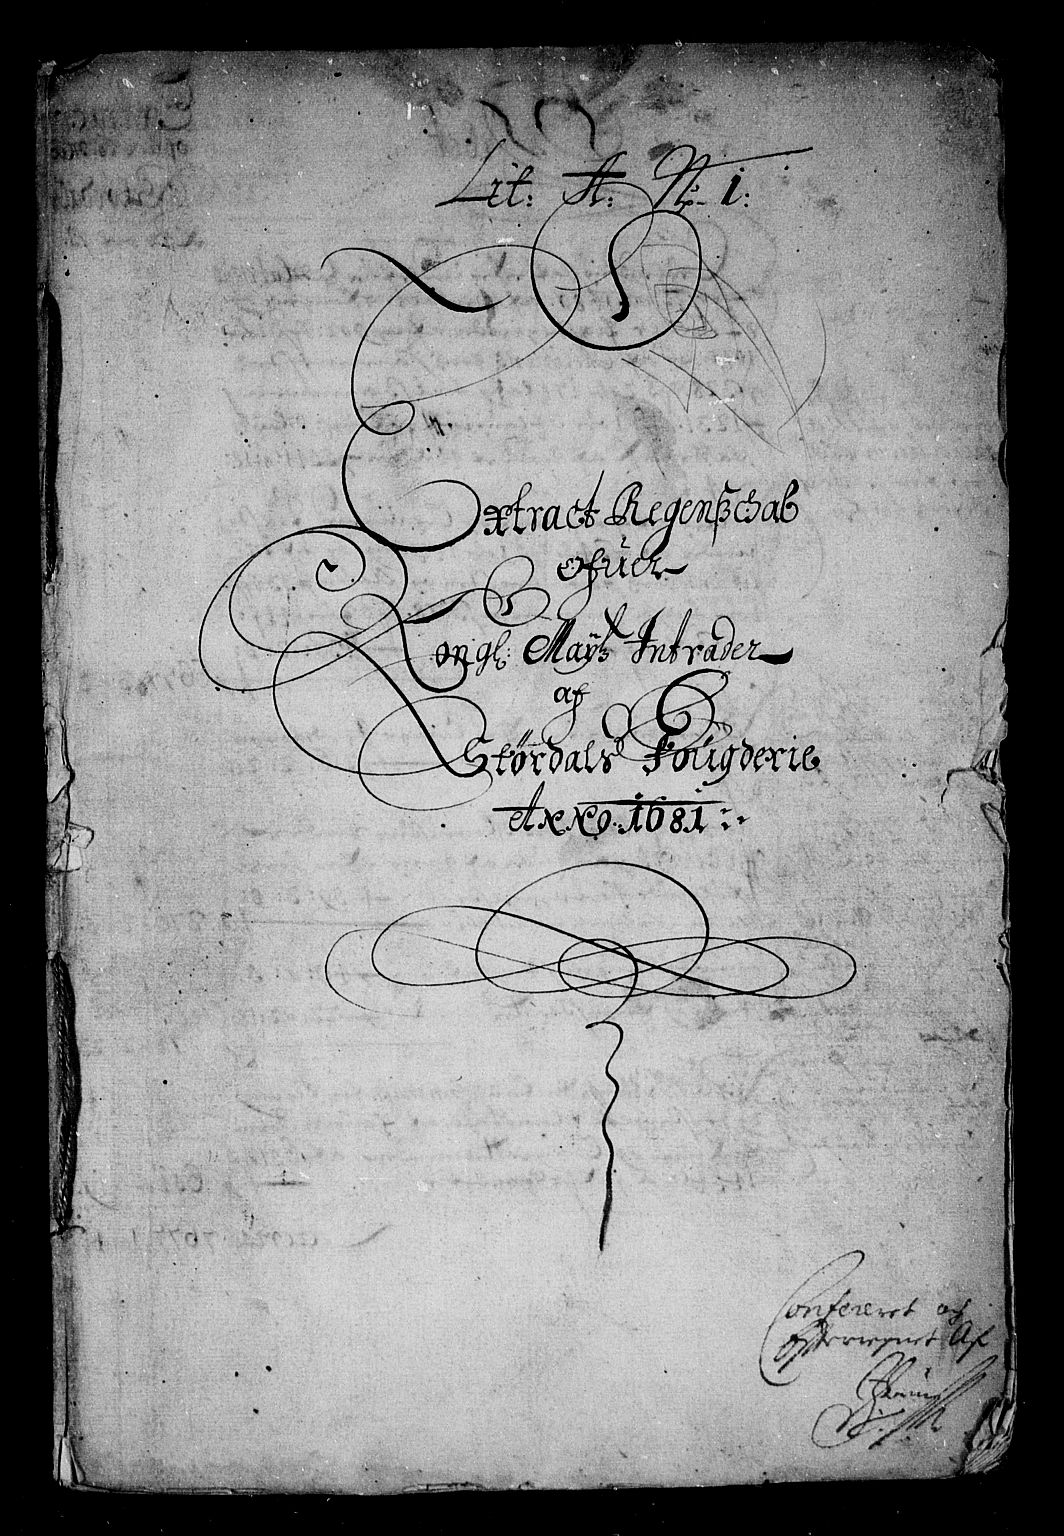 Lit: A: No: 1:
Extract Regenßchab
ofuer
Kongl: Maytz Intrader
af
Størdals Fougderie
Anno: 1681
Confereret och
Efterregnet Af